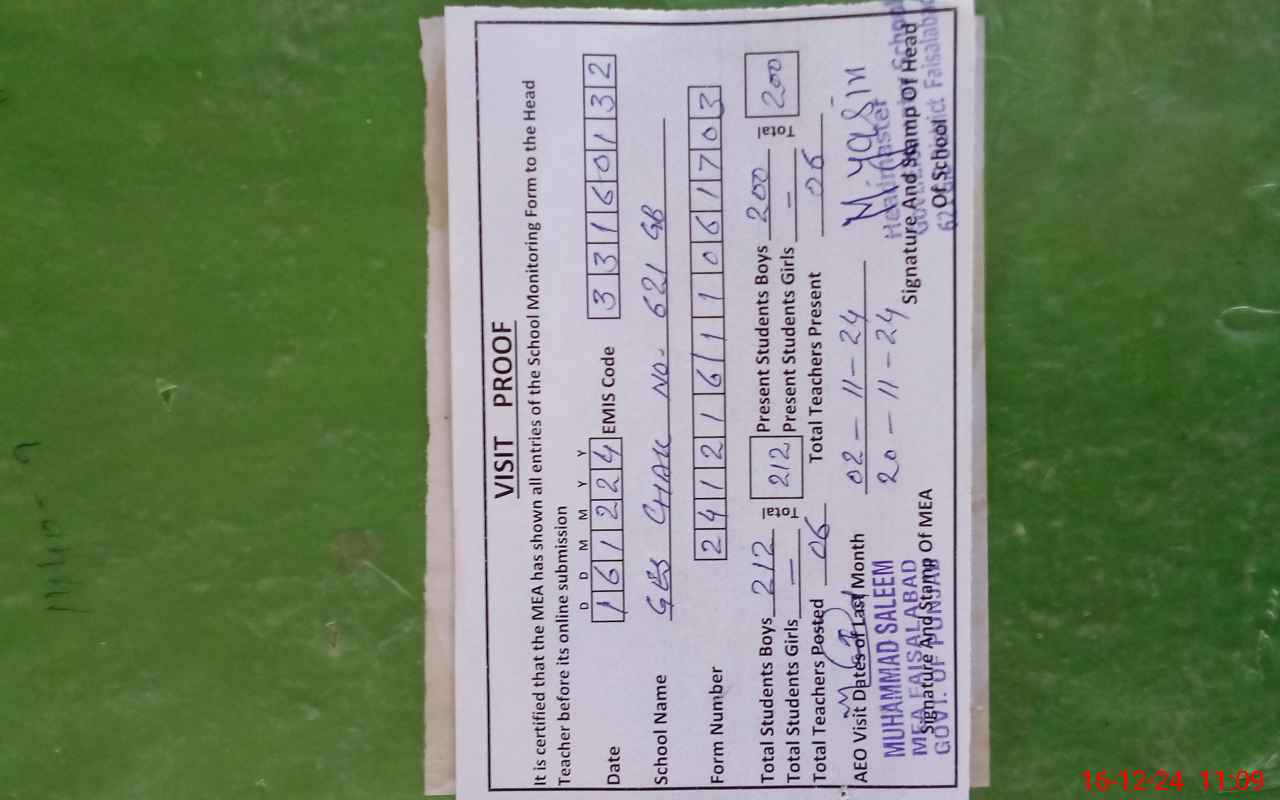 VISIT PROOF
It is certified that the MEA has shown all entries of the School Monitoring Form to the Head
Teacher before its online submission
D D M M Y Y
Date 161224 EMIS Code 33160132
School Name GES CHAK NO. 621 GB
Form Number 241216111061703
Total Students Boys 212 Total 212 Present Students Boys 200 Total 200
Total Students Girls — Present Students Girls —
Total Teachers Posted 06 Total Teachers Present 06
AEO Visit Dates of Last Month 02-11-24
20-11-24
M Yasin
MUHAMMAD SALEEM
MEA FAISALABAD
GOVT. OF PUNJAB
Signature And Stamp Of MEA
Headmaster
School
District Faisalabad
Signature And Stamp Of Head
Of School
16-12-24 11:09